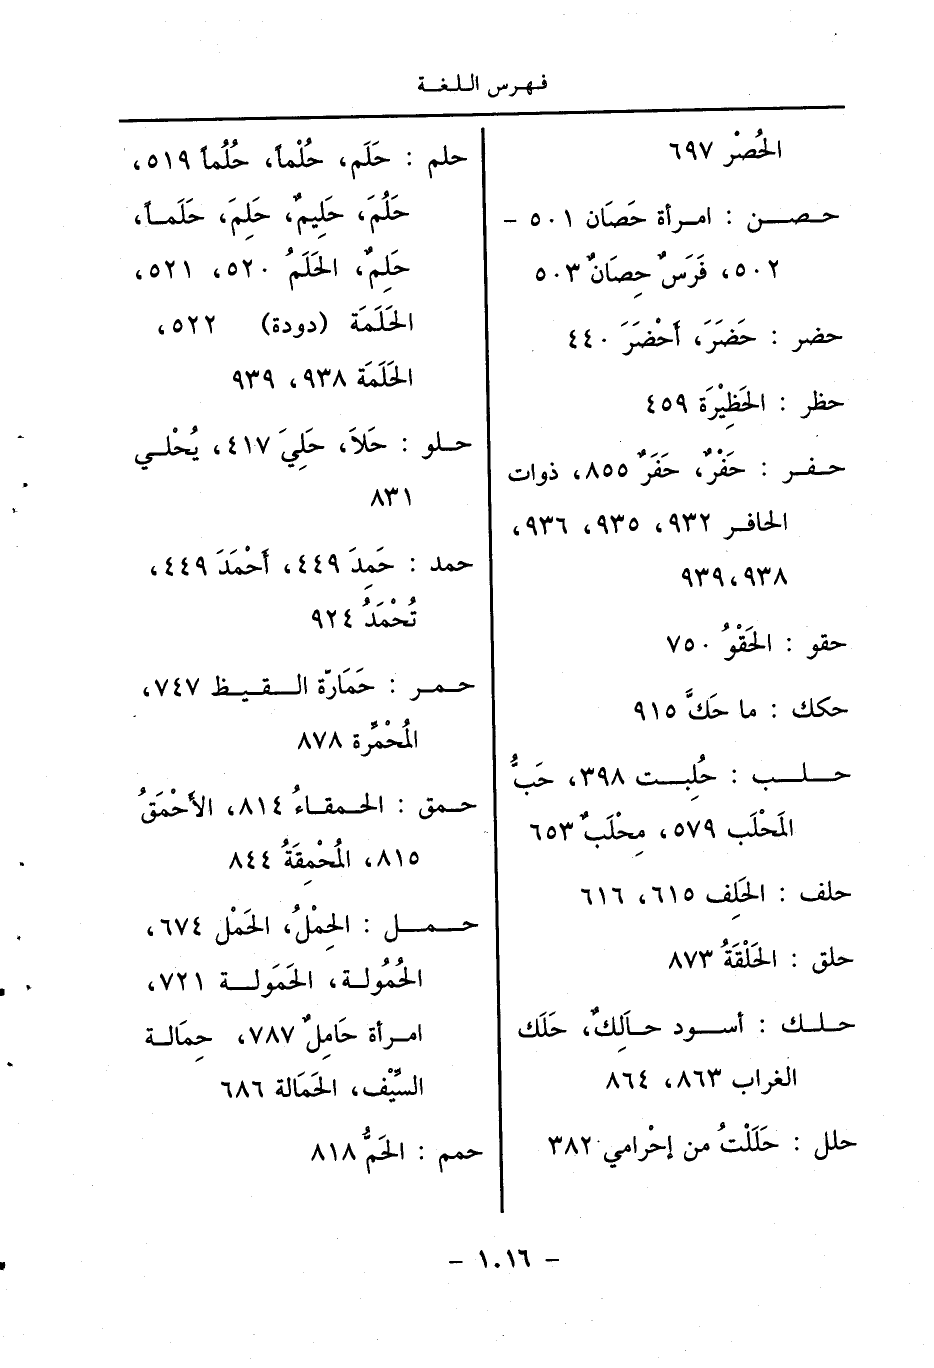 فهرس اللغة
الحُصْر ٦٩٧
حصن : امرأة حَصَان ٥٠١ -
٥٠٢، فَرَسٌ حِصَانٌ ٥٠٣
حضر : حَضَرَ، أَحْضَرَ ٤٤٠
حظر : الحَظِيْرَة ٤٥٩
حفر : حَفْرٌ، حَفَرٌ ٨٥٥، ذوات
الحافر ٩٣٢، ٩٣٥، ٩٣٦،
٩٣٨،٩٣٩
حقو : الحَقْوُ ٧٥٠
حكك : ما حَكَّ ٩١٥
حلب : حُلِبت ٣٩٨، حَبُّ
المَحْلَب ٥٧٩، مِحْلَبٌ ٦٥٣
حلف : الحَلِف ٦١٥، ٦١٦
حلق : الحَلْقَةُ ٨٧٣
حلك : أسود حَالِكٌ، حَلَك
الغراب ٨٦٣، ٨٦٤
حلل : حَلَلْتُ من إحْرامي ٣٨٢
حلم : حَلَم، حُلْماً، حُلُماً ٥١٩،
حَلُمَ، حَلِيمٌ، حَلِمَ، حَلَماً،
حَلِمٌ، الحَلَمُ ٥٢٠، ٥٢١،
الحَلَمَة (دودة) ٥٢٢،
الحَلَمَة ٩٣٨، ٩٣٩
حلو : حَلاَ، حَلِيَ ٤١٧، يُحْلي
٨٣١
حمد : حَمِدَ ٤٤٩، أَحْمَدَ ٤٤٩،
تُحْمَدُ ٩٢٤
حمر : حَمَارّة القيظ ٧٤٧،
المُحْمَّرة ٨٧٨
حمق : الحمقاءُ ٨١٤، الأَحْمَقُ
٨١٥، المُحْمِقَةُ ٨٤٤
حمل : الحِمْلُ، الحَمْل ٦٧٤،
الحُمُولة، الحَمَولة ٧٢١،
امرأة حَامِلٌ ٧٨٧، حِمَالة
السَّيْف، الحَمَالة ٦٨٦
حمم : الحَمُّ ٨١٨
- ١٠١٦ -